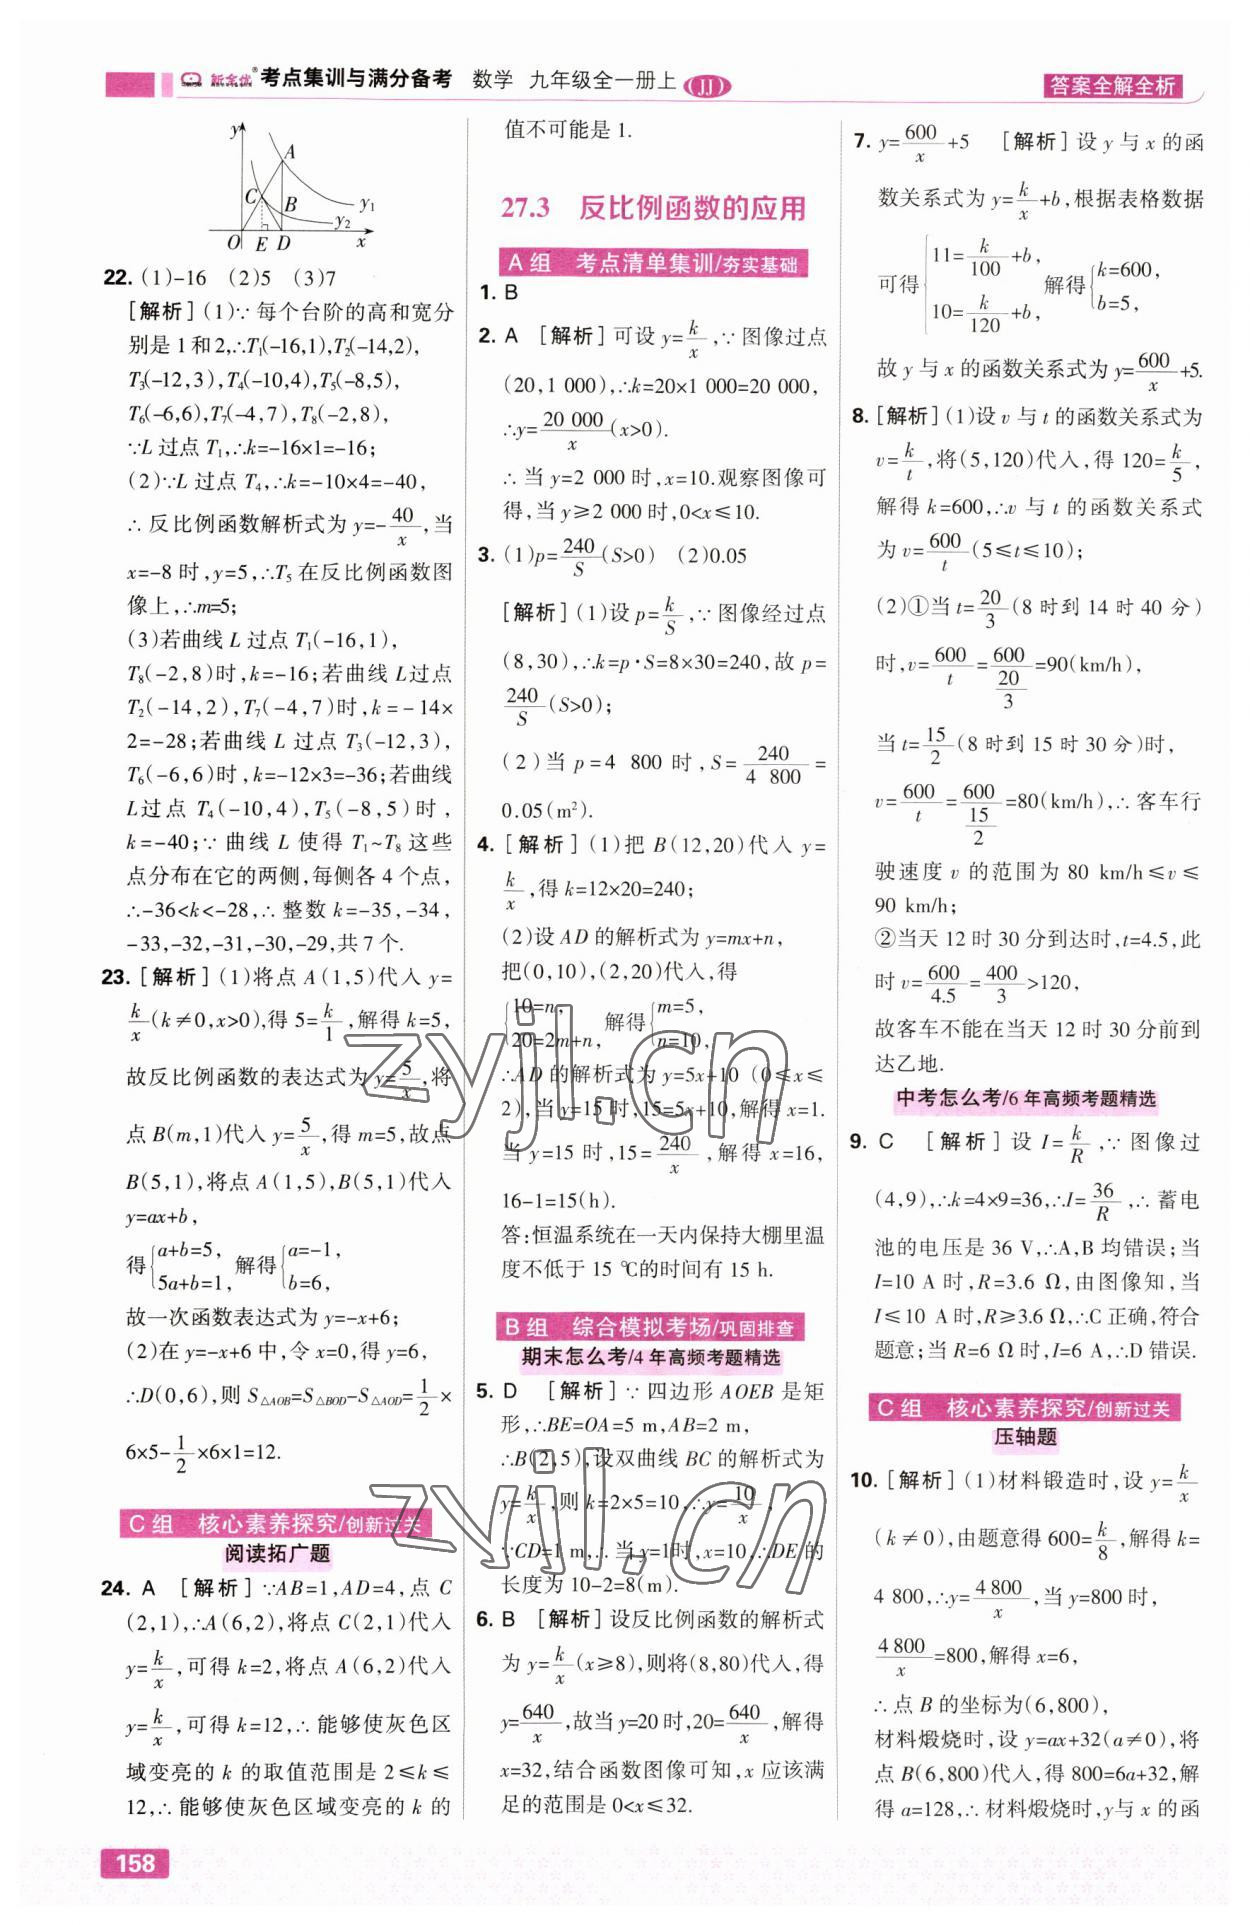 新全优®考点集训与满分备考 数学 九年级全一册上(JJ)
答案全解全析
y
A
C
B
y₁
y₂
O E D x
22. (1)-16 (2)5 (3)7
[解析](1)∵每个台阶的高和宽分
别是1和2,∴T₁(-16,1),T₂(-14,2),
T₃(-12,3),T₄(-10,4),T₅(-8,5),
T₆(-6,6),T₇(-4,7),T₈(-2,8),
∵L过点T₁,∴k=-16×1=-16;
(2)∵L过点T₄,∴k=-10×4=-40,
∴反比例函数解析式为y=-40/x,当
x=-8时,y=5,∴T₅在反比例函数图
像上,∴m=5;
(3)若曲线L过点T₁(-16,1),
T₈(-2,8)时,k=-16;若曲线L过点
T₂(-14,2),T₇(-4,7)时,k=-14×
2=-28;若曲线L过点T₃(-12,3),
T₆(-6,6)时,k=-12×3=-36;若曲线
L过点T₄(-10,4),T₅(-8,5)时,
k=-40;∵曲线L使得T₁~T₈这些
点分布在它的两侧,每侧各4个点,
∴-36<k<-28,∴整数k=-35,-34,
-33,-32,-31,-30,-29,共7个.
23. [解析](1)将点A(1,5)代入y=
k/x(k≠0,x>0),得5=k/1,解得k=5,
故反比例函数的表达式为y=5/x,将
点B(m,1)代入y=5/x,得m=5,故点
B(5,1),将点A(1,5),B(5,1)代入
y=ax+b,
得{a+b=5, 5a+b=1, 解得{a=-1, b=6,
故一次函数表达式为y=-x+6;
(2)在y=-x+6中,令x=0,得y=6,
∴D(0,6),则S△AOB=S△BOD-S△AOD=1/2×
6×5-1/2×6×1=12.
C组 核心素养探究/创新过关
阅读拓广题
24. A [解析]∵AB=1,AD=4,点C
(2,1),∴A(6,2),将点C(2,1)代入
y=k/x,可得k=2,将点A(6,2)代入
y=k/x,可得k=12,∴能够使灰色区
域变亮的k的取值范围是2≤k≤
12,∴能够使灰色区域变亮的k的
158
值不可能是1.
27.3 反比例函数的应用
A组 考点清单集训/夯实基础
1. B
2. A [解析]可设y=k/x,∵图像过点
(20,1 000),∴k=20×1 000=20 000,
∴y=20 000/x(x>0).
∴当y=2 000时,x=10.观察图像可
得,当y≥2 000时,0<x≤10.
3. (1)p=240/S(S>0) (2)0.05
[解析](1)设p=k/S,∵图像经过点
(8,30),∴k=p·S=8×30=240,故p=
240/S(S>0);
(2)当p=4 800时,S=240/4 800=
0.05(m²).
4. [解析](1)把B(12,20)代入y=
k/x,得k=12×20=240;
(2)设AD的解析式为y=mx+n,
把(0,10),(2,20)代入,得
{10=n, 20=2m+n, 解得{m=5, n=10,
∴AD的解析式为y=5x+10(0≤x≤
2),当y=15时,15=5x+10,解得x=1.
当y=15时,15=240/x,解得x=16,
16-1=15(h).
答:恒温系统在一天内保持大棚里温
度不低于15 ℃的时间有15 h.
B组 综合模拟考场/巩固排查
期末怎么考/4年高频考题精选
5. D [解析]∵四边形AOEB是矩
形,∴BE=OA=5 m,AB=2 m,
∴B(2,5),设双曲线BC的解析式为
y=k/x,则k=2×5=10,∴y=10/x,
∵CD=1 m,∴当y=1时,x=10,∴DE的
长度为10-2=8(m).
6. B [解析]设反比例函数的解析式
为y=k/x(x≥8),则将(8,80)代入,得
y=640/x,故当y=20时,20=640/x,解得
x=32,结合函数图像可知,x应该满
足的范围是0<x≤32.
7. y=600/x+5 [解析]设y与x的函
数关系式为y=k/x+b,根据表格数据
可得{11=k/100+b, 10=k/120+b, 解得{k=600, b=5,
故y与x的函数关系式为y=600/x+5.
8. [解析](1)设v与t的函数关系式为
v=k/t,将(5,120)代入,得120=k/5,
解得k=600,∴v与t的函数关系式
为v=600/t(5≤t≤10);
(2)①当t=20/3(8时到14时40分)
时,v=600/t=600/(20/3)=90(km/h),
当t=15/2(8时到15时30分)时,
v=600/t=600/(15/2)=80(km/h),∴客车行
驶速度v的范围为80 km/h≤v≤
90 km/h;
②当天12时30分到达时,t=4.5,此
时v=600/4.5=400/3>120,
故客车不能在当天12时30分前到
达乙地.
中考怎么考/6年高频考题精选
9. C [解析]设I=k/R,∵图像过
(4,9),∴k=4×9=36,∴I=36/R,∴蓄电
池的电压是36 V,∴A,B均错误;当
I=10 A时,R=3.6 Ω,由图像知,当
I≤10 A时,R≥3.6 Ω,∴C正确,符合
题意;当R=6 Ω时,I=6 A,∴D错误.
C组 核心素养探究/创新过关
压轴题
10. [解析](1)材料锻造时,设y=k/x
(k≠0),由题意得600=k/8,解得k=
4 800,∴y=4 800/x,当y=800时,
4 800/x=800,解得x=6,
∴点B的坐标为(6,800),
材料煅烧时,设y=ax+32(a≠0),将
点B(6,800)代入,得800=6a+32,解
得a=128,∴材料煅烧时,y与x的函
zyjl.cn
zyjl.cn